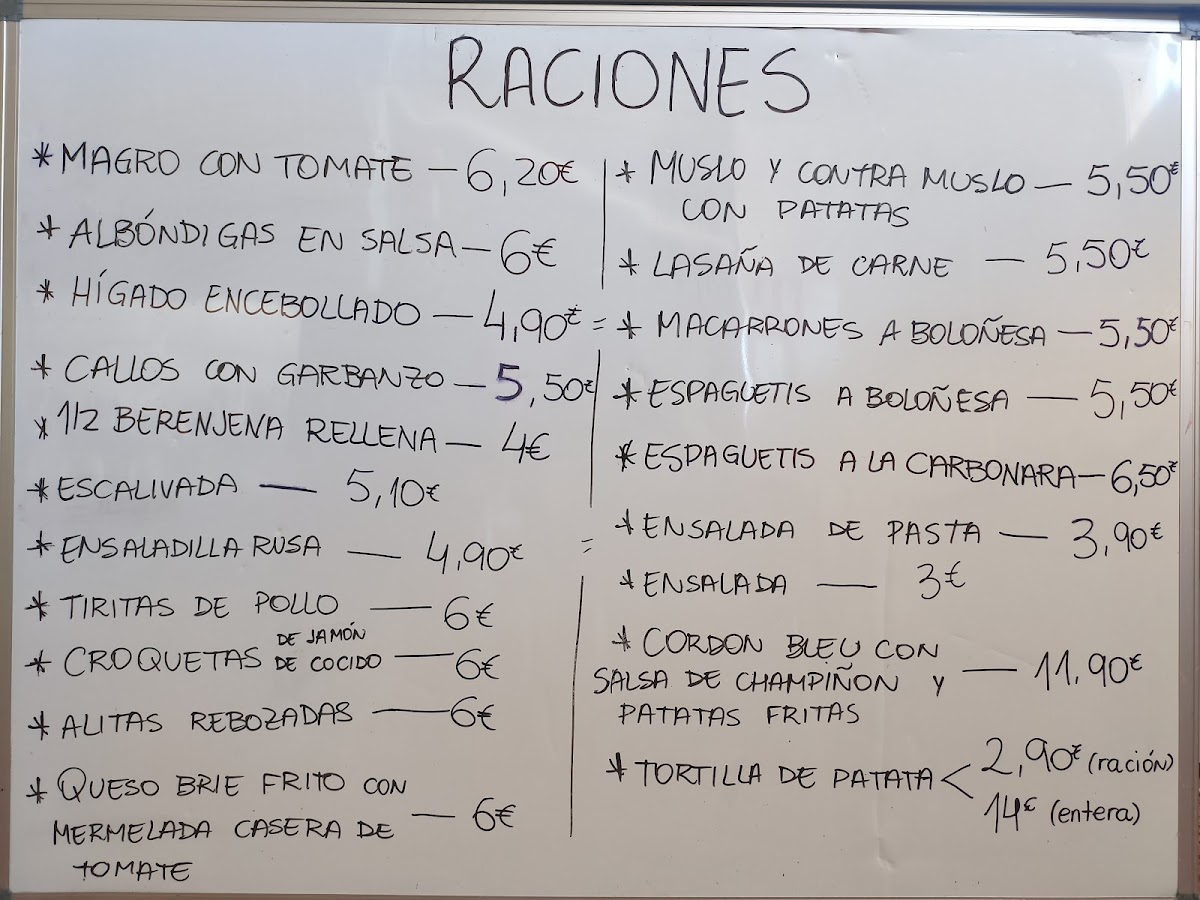 RACIONES
* MAGRO CON TOMATE — 6,20€
* ALBÓNDIGAS EN SALSA — 6€
* HÍGADO ENCEBOLLADO — 4,90€
* CALLOS CON GARBANZO — 5,50€
* 1/2 BERENJENA RELLENA — 4€
* ESCALIVADA — 5,10€
* ENSALADILLA RUSA — 4,90€
* TIRITAS DE POLLO — 6€
DE JAMÓN
* CROQUETAS DE COCIDO — 6€
* ALITAS REBOZADAS — 6€
* QUESO BRIE FRITO CON
MERMELADA CASERA DE — 6€
TOMATE
* MUSLO Y CONTRA MUSLO — 5,50€
CON PATATAS
* LASAÑA DE CARNE — 5,50€
* MACARRONES A BOLOÑESA — 5,50€
* ESPAGUETIS A BOLOÑESA — 5,50€
* ESPAGUETIS A LA CARBONARA — 6,50€
* ENSALADA DE PASTA — 3,90€
* ENSALADA — 3€
* CORDON BLEU CON
SALSA DE CHAMPIÑON Y — 11,90€
PATATAS FRITAS
* TORTILLA DE PATATA < 2,90€ (ración)
14€ (entera)